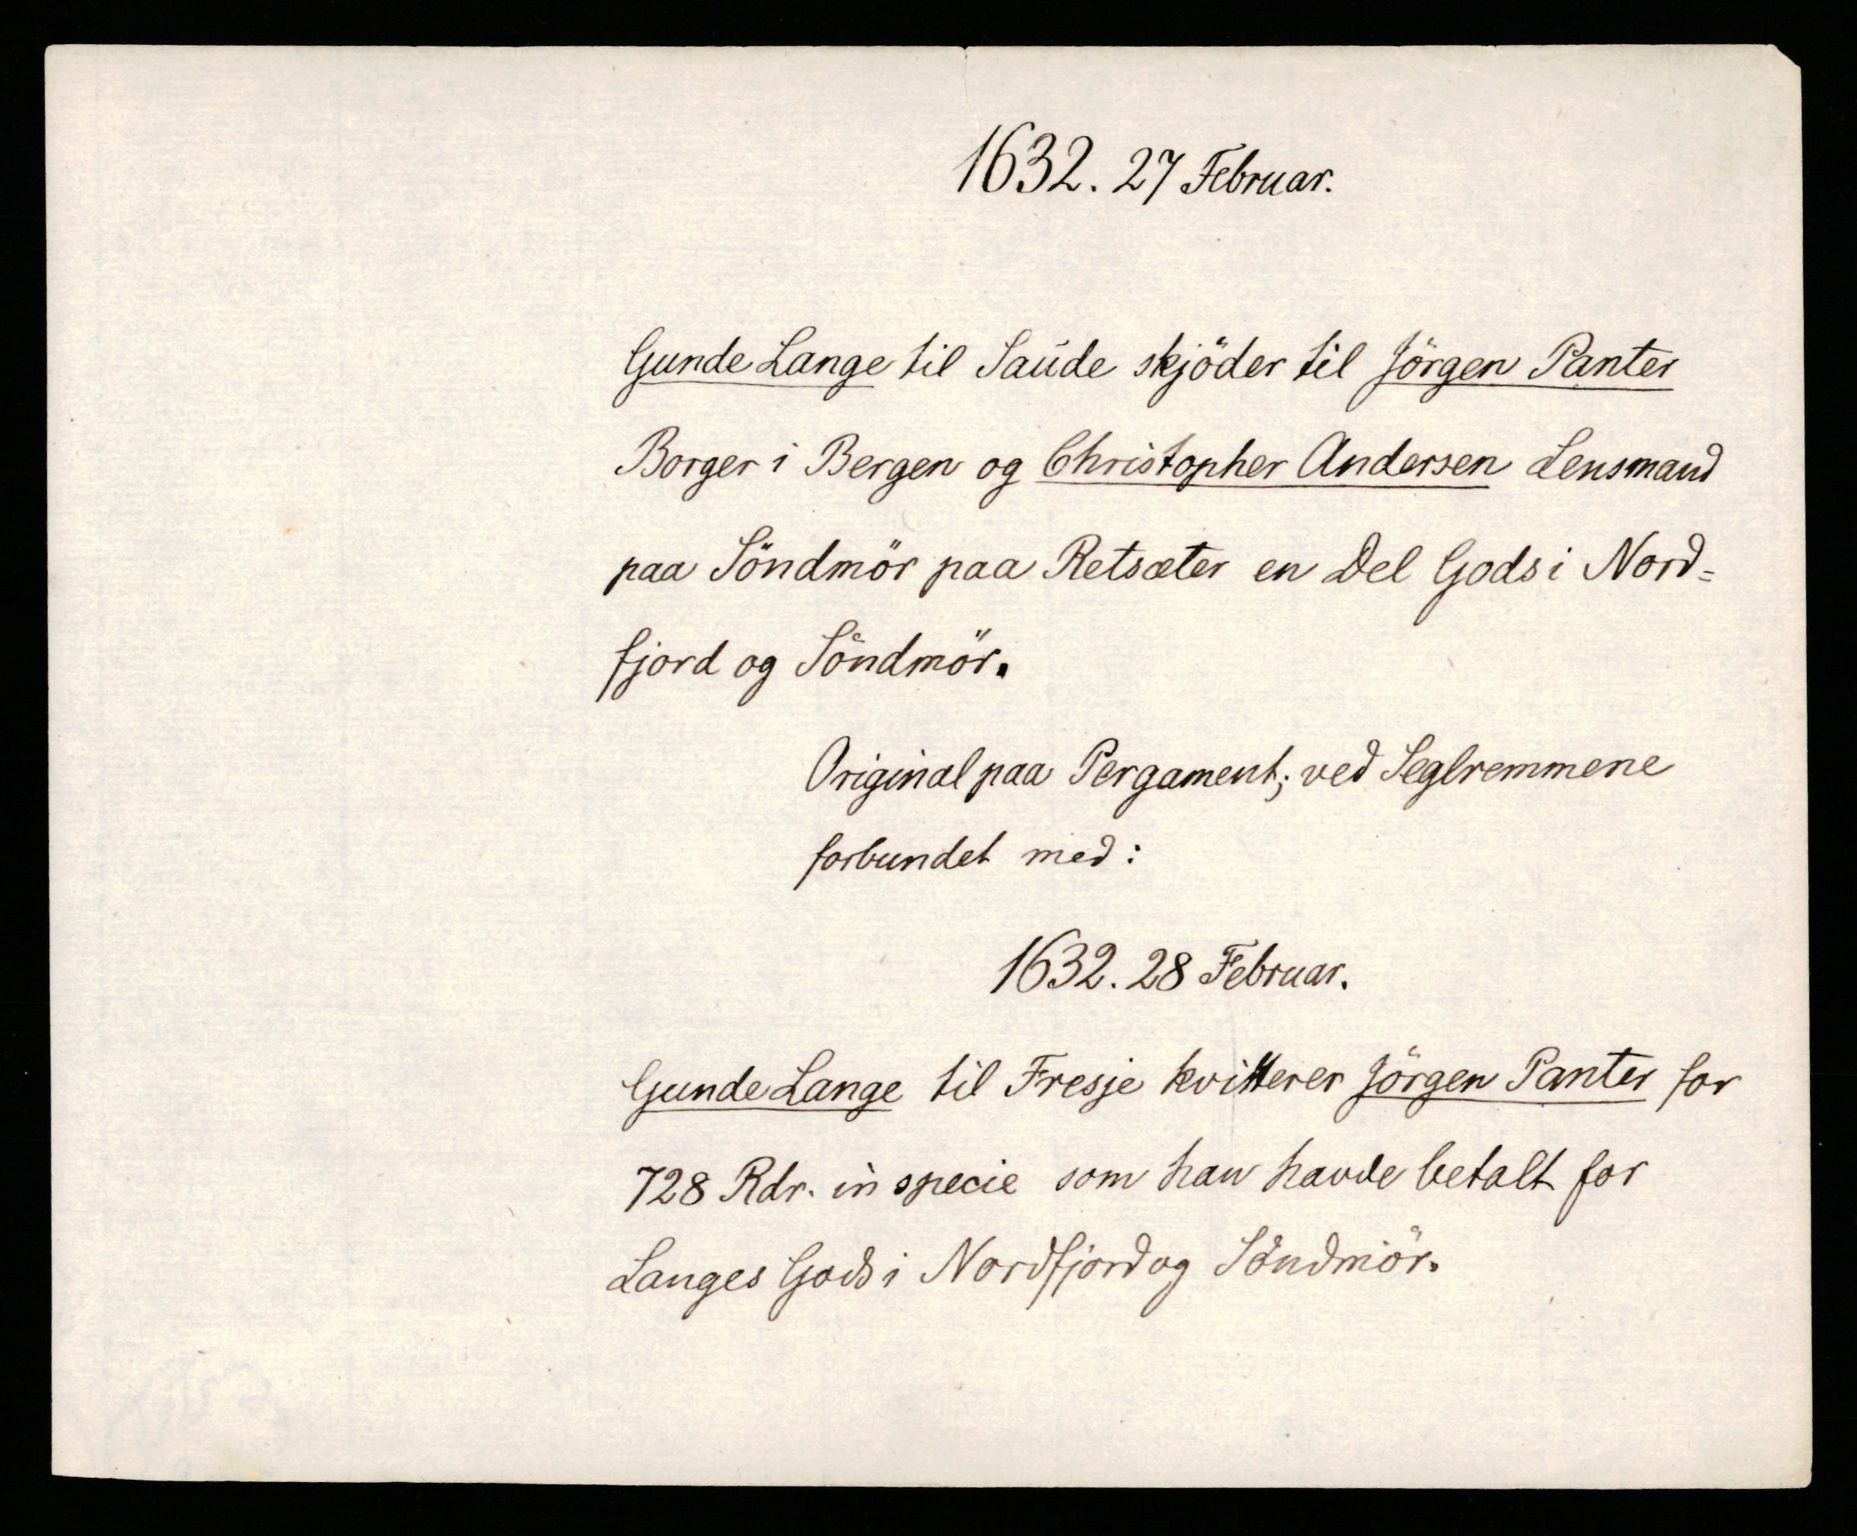 1632. 27 Februar.
Gunde Lange til Saude skjöder til Jörgen Panter
Borger i Bergen og Christopher Andersen Lensmand
paa Söndmör paa Retsæter en Del Gods i Nord=
fjord og Söndmör.
Original paa Pergament; ved Seglremmene
forbundet med:
1632. 28 Februar.
Gunde Lange til Fresje kvitterer Jörgen Panter for
728 Rdr. in specie som han havde betalt for
Langes Gods i Nordfjord og Söndmör.